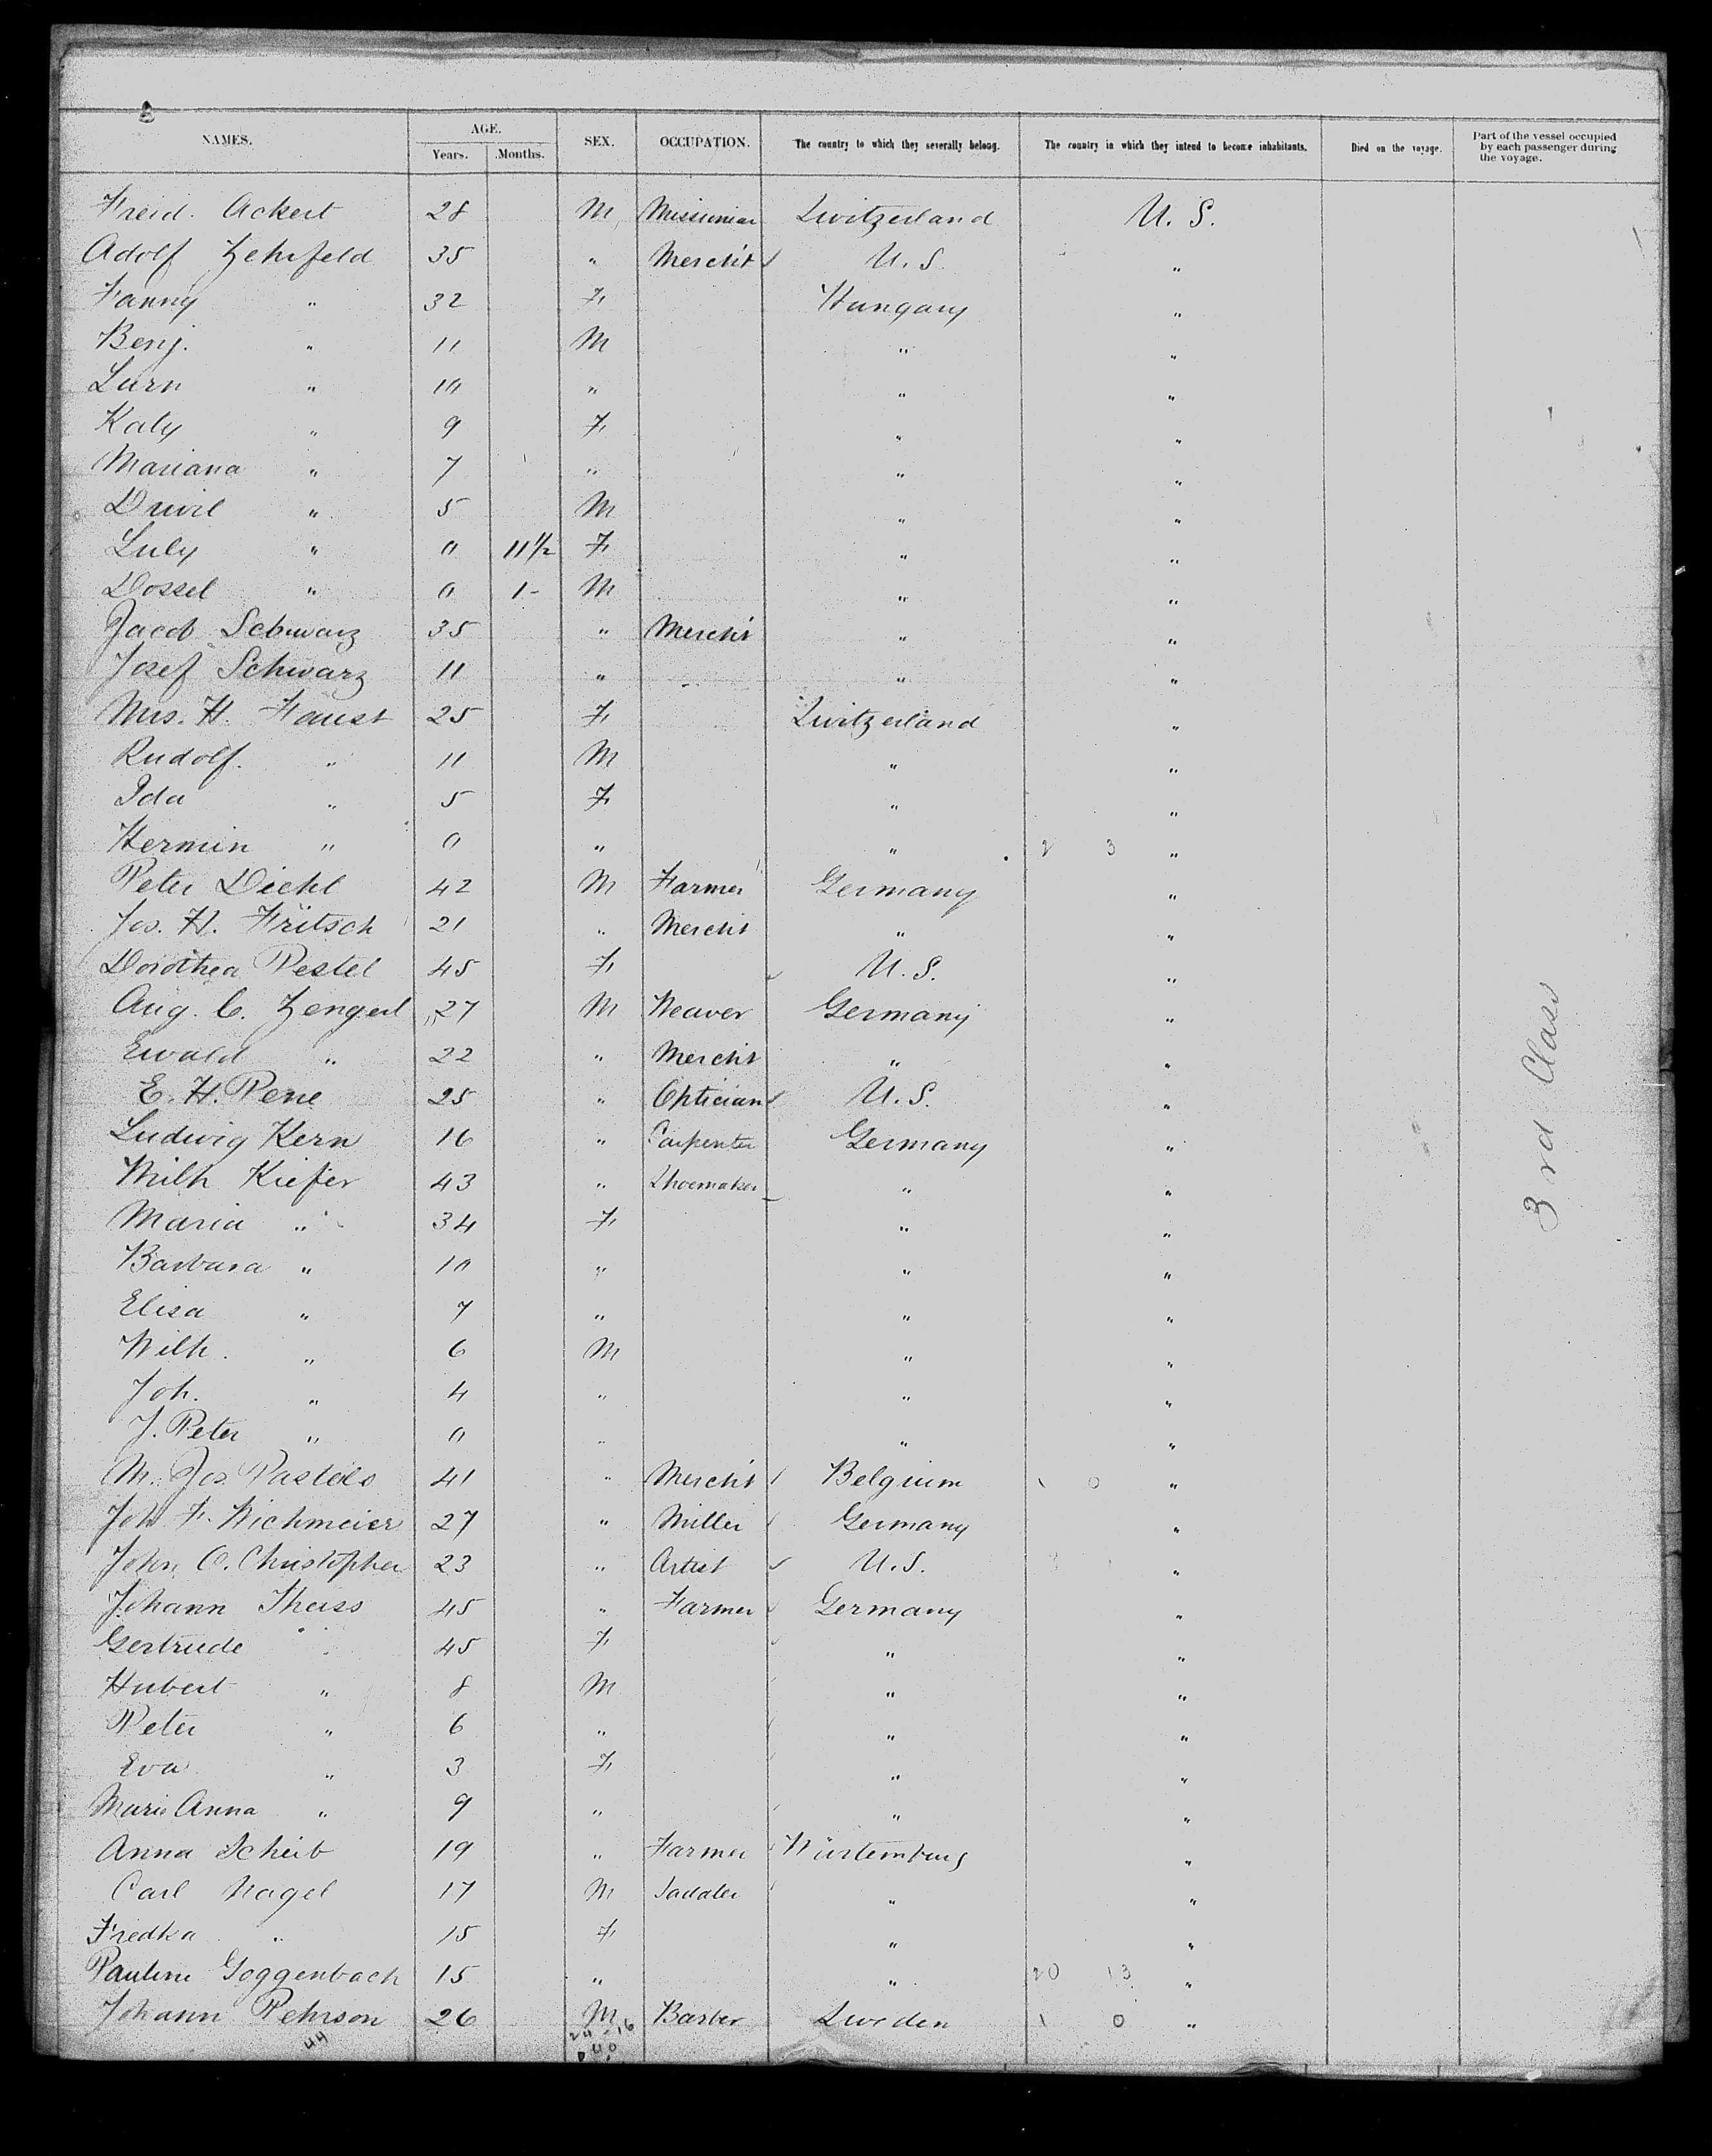 NAMES. AGE. Years. Months. SEX. OCCUPATION. The country to which they severally belong. The country in which they intend to become inhabitants. Died on the voyage. Part of the vessel occupied by each passenger during the voyage.
Freid. Ackert 28 M Switzerland U. S.
Adolf Zehrfeld 35 " Mercht U. S. "
Fanny " 32 F Hungary "
Benj. " 11 M " "
" 10 " " "
Kaly " 9 F " "
Mariana " 7 " " "
" 5 M " "
Luly " 0 11½ F " "
Dossel " 0 1- M " "
Jacob Schwarz 35 " Mercht " "
Josef Schwarz 11 " " "
Mrs. H. Faust 25 F Switzerland "
Rudolf. " 11 M " "
Ida " 5 F " "
Hermin " 0 " " 2 3 "
Peter Diehl 42 M Farmer Germany "
Jos. H. Fritsch 21 " Mercht " "
Dorothea Pestel 45 F U. S. "
Aug. C. 27 M Weaver Germany "
Ewald " 22 " Mercht " "
E. H. Pene 25 " Optician U. S. "
Ludwig Kern 16 " Carpenter Germany "
Wilh Kiefer 43 " Shoemaker " "
Maria " 34 F " "
Barbara " 10 " " "
Elisa " 7 " " "
Wilh. " 6 M " "
Joh. " 4 " " "
J. Peter " 0 " " "
M. Jos. 41 " Mercht Belgium 1 0 "
Joh F. Wichmeier 27 " Miller Germany "
John O. Christopher 23 " Artist U. S. "
Johann Theiss 45 " Farmer Germany "
Gertrude " 45 F " "
Hubert " 8 M " "
Peter " 6 " " "
Eva " 3 F " "
Marie Anna " 9 " " "
Anna Scheib 19 " Farmer Würtemburg "
Carl Nagel 17 M Saddler " "
Fredka " 15 F " "
Pauline Goggenbach 15 " " 20 13 "
Johann Pehrson 26 M Barber Sweden 1 0 "
44 24-16
40
3rd Class